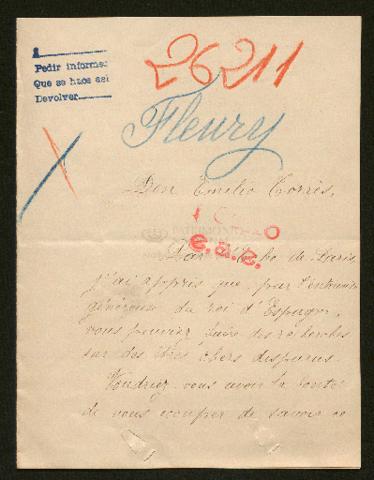 Pedir informes
Que se hace así
Devolver
26211
Fleury
Don Emilio Torrès,
PATRIMONIO
Par l'Echo de Paris
j'ai appris que, par l'entremise
généreuse du roi d'Espagne,
vous pouviez faire des recherches
sur des êtres chers disparus.
Voudriez-vous avoir la bonté
de vous occuper de savoir ce